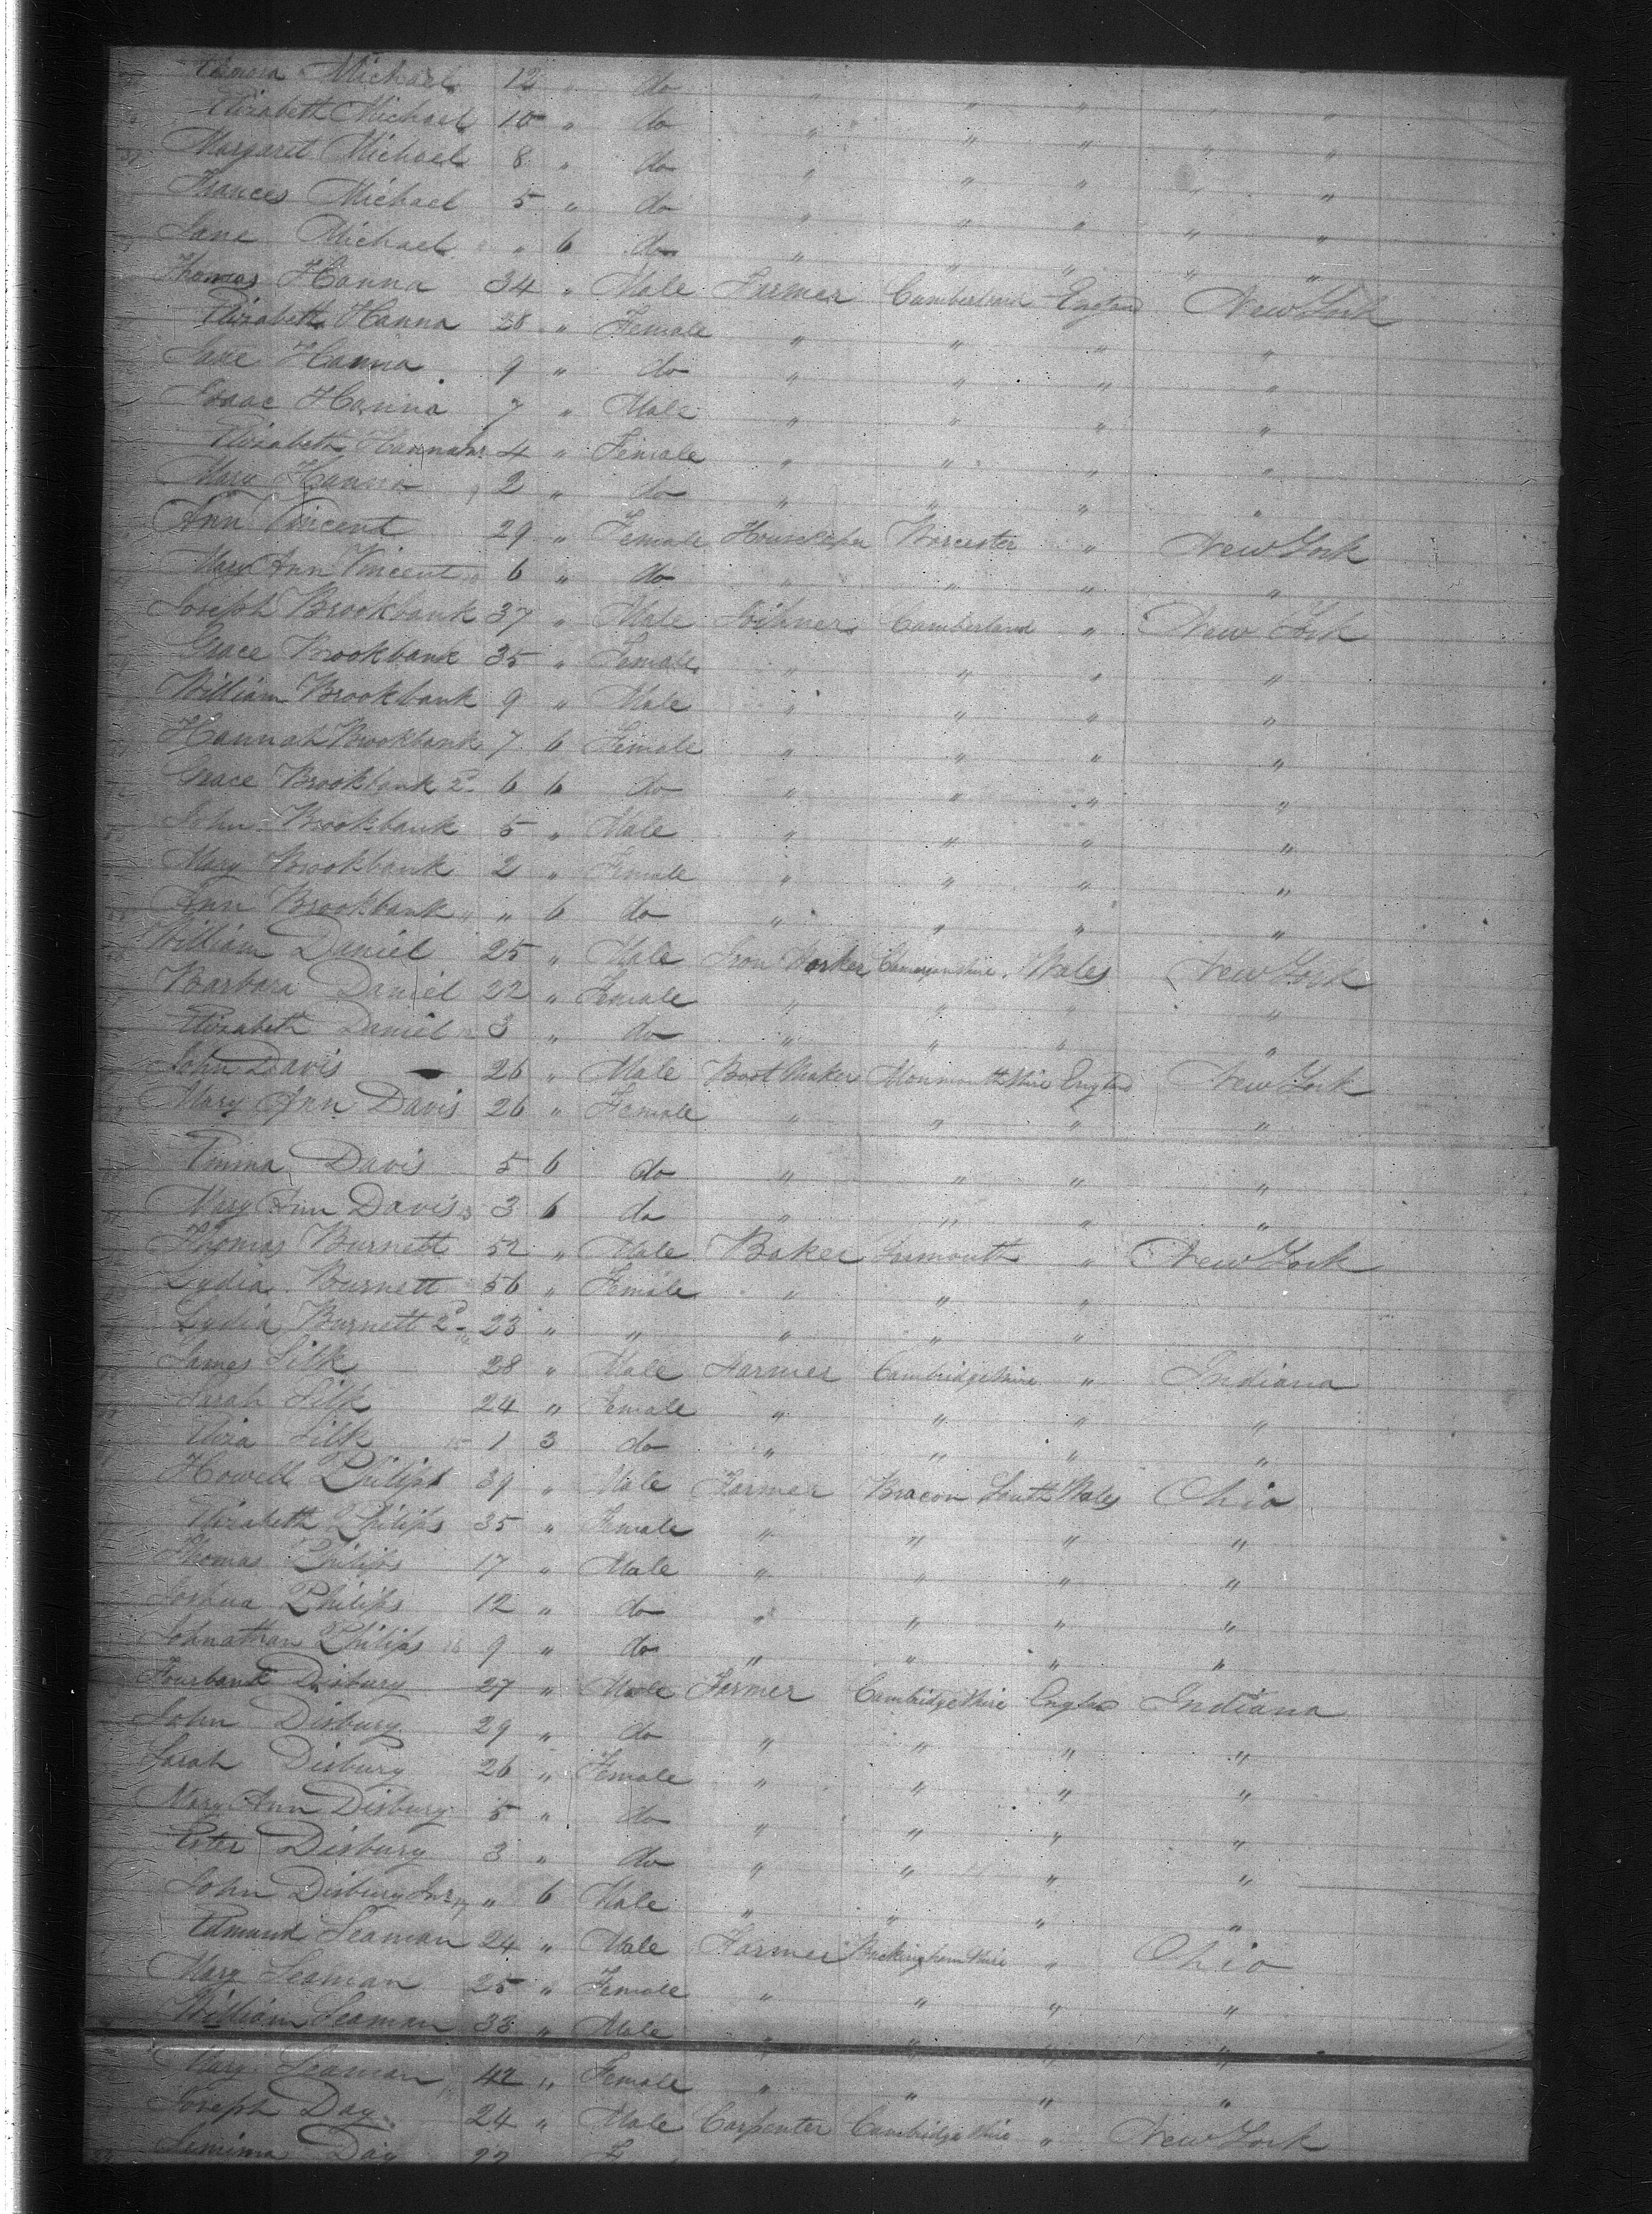 Michael 12 " do " " " " "
Elizabeth Michael 10 " do " " " " "
Margaret Michael 8 " do " " " " "
Frances Michael 5 " do " " " " "
Jane Michael " 6 do " " " " "
Thomas Hanna 34 " Male Farmer Cumberland England New York
Elizabeth Hanna 28 " Female " " " "
Jane Hanna 9 " do " " " "
Isaac Hanna 7 " Male " " " "
Elizabeth Hanna 4 " Female " " " "
Mary Hanna 2 " do " " " "
Ann Vincent 29 " Female Housekeeper Worcester " New York
Mary Ann Vincent 6 " do " " " "
Joseph Brookbank 37 " Male Cumberland " New York
Grace Brookbank 35 " Female " " " "
William Brookbank 9 " Male " " " "
Hannah Brookbank 7 6 Female " " " "
Grace Brookbank 2d 6 6 do " " " "
John Brookbank 5 " Male " " " "
Mary Brookbank 2 " Female " " " "
Ann Brookbank " 6 do " " " "
William Daniel 25 " Male Iron Worker Wales New York
Barbara Daniel 22 " Female " " " "
Elizabeth Daniel 3 " do " " " "
John Davis 26 " Male Boot Maker Monmouthshire England New York
Mary Ann Davis 26 " Female " " " "
Emma Davis 5 6 do " " " "
Mary Ann Davis 3 6 do " " " "
Thomas Burnett 52 " Male Baker Yarmouth " New York
Lydia Burnett 56 " Female " " "
Lydia Burnett 2d 23 " " " " "
James Silk 28 " Male Farmer Cambridgeshire " Indiana
Sarah Silk 24 " Female " " " "
Eliza Silk 1 3 do " " " "
Howell Philips 39 " Male Farmer Bracon South Wales Ohio
Elizabeth Philips 35 " Female " " " "
Thomas Philips 17 " Male " " " "
Joshua Philips 12 " do " " " "
Johnathan Philips 9 " do " " " "
Disbury 27 " Male Farmer Cambridgeshire England Indiana
John Disbury 29 " do " " " "
Sarah Disbury 26 " Female " " " "
Mary Ann Disbury 5 " do " " " "
Ester Disbury 3 " do " " " "
John Disbury Jnr " 6 Male " " " "
Edmund Seaman 24 " Male Farmer Buckinghamshire " Ohio
Mary Seaman 25 " Female " " " "
William Seaman 33 " Male " " " "
Mary Seaman 42 " Female " " " "
Joseph Day 24 " Male Carpenter Cambridgeshire " New York
Jemima Day 22